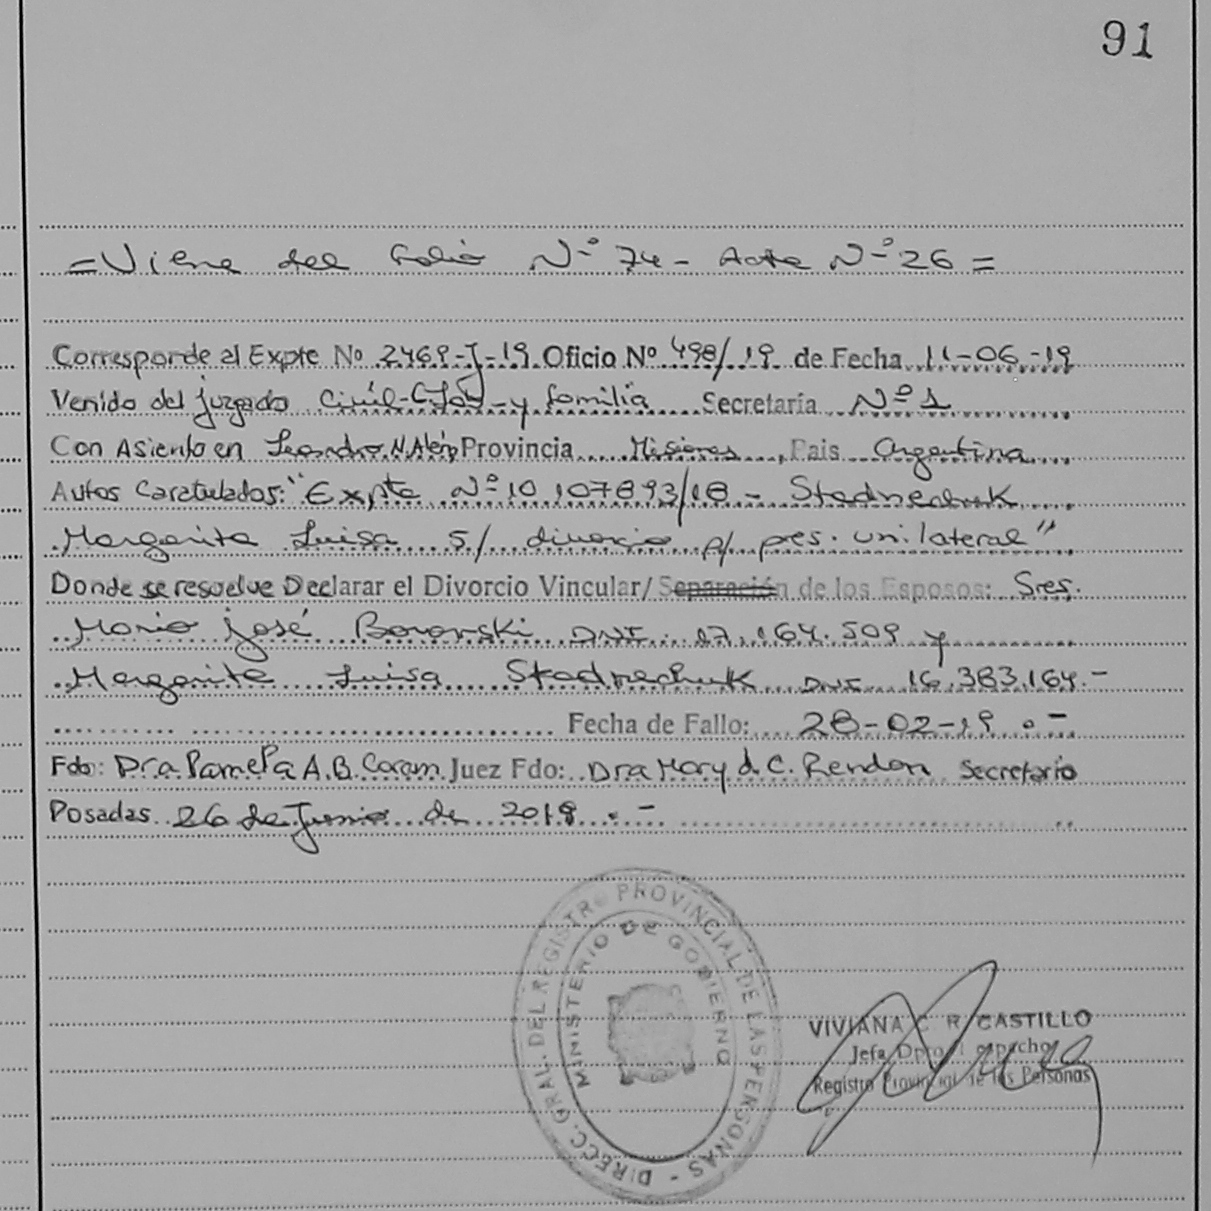 91
= Viene del Folio N° 74 - Acta N° 26 =
Corresponde al Expte No 2469-J-19 Oficio No 498/19 de Fecha 11-06-19
Venido del Juzgado Civil-C- y familia Secretaría N° 1
Con Asiento en Leandro N. Alem Provincia Misiones, Pais Argentina
Autos Caratulados: "Expte N° 107893/18 - Stadnechuk
Margarita Luisa s/ divorcio p/ pres. unilateral"
Donde se resuelve Declarar el Divorcio Vincular/ Separación de los Esposos: Sres.
Mario José Borowski DNI 17.164.509 y
Margarita Luisa Stadnechuk DNI 16.383.164.-
Fecha de Fallo: 28-02-19.-
Fdo: Dra. Pamela A.B. Caram Juez Fdo: Dra Mary d. C. Rendon Secretario
Posadas 26 de Junio de 2019.-
DIRECC. GRAL. DEL REGISTRO PROVINCIAL DE LAS PERSONAS -
MINISTERIO DE GOBIERNO
VIVIANA C R CASTILLO
Jefa Dpto
Registro Provincial de las Personas